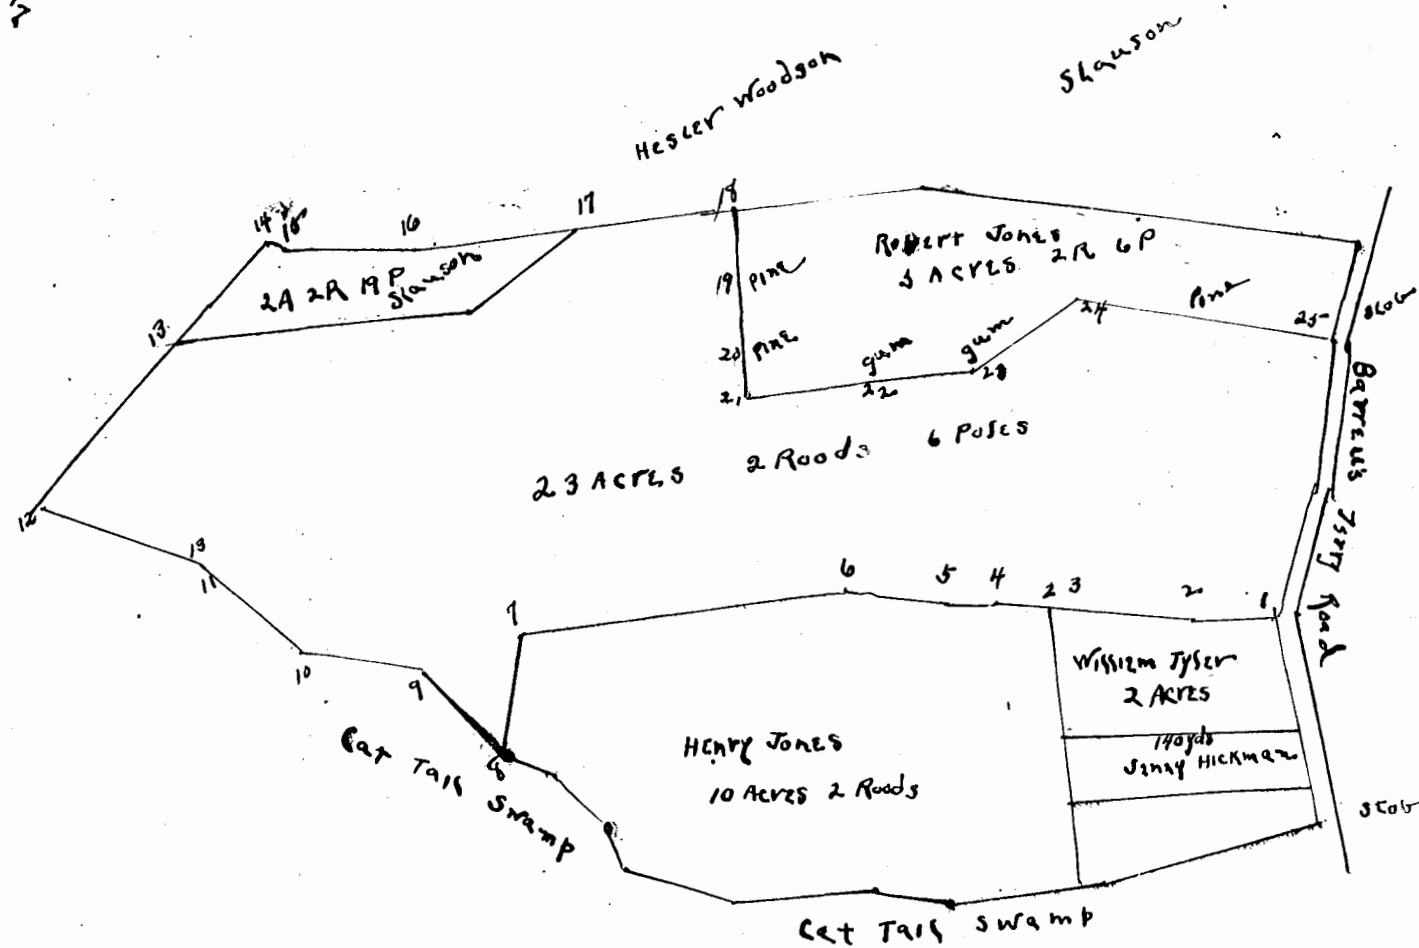 Slauson
Hester Woodson
14 15 16 17 18
2A 2R 19P
Slauson
13
Robert Jones
5 ACRES 2R 6P
19 Pine
20 Pine
21
gum
22
gum
23
24
Pine
25
Stob
23 ACRES 2 Roods 6 Poles
Road
12
10
9
8
7
6 5 4 2 3 2 1
William Tyler
2 ACRES
140 yds
Jenny Hickman
Henry Jones
10 Acres 2 Roods
Stob
Cat Tail Swamp
Cat Tail Swamp